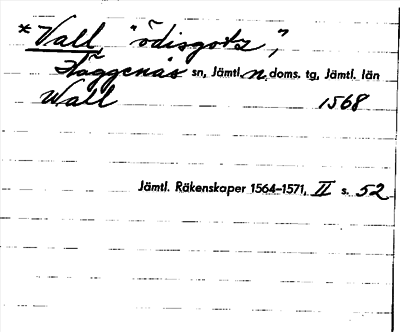 * Vall, "ödisgotz",
Häggenås sn, Jämtl. n. doms. tg, Jämtl. län
Wall 1568
Jämtl. Räkenskaper 1564-1571, II s. 52